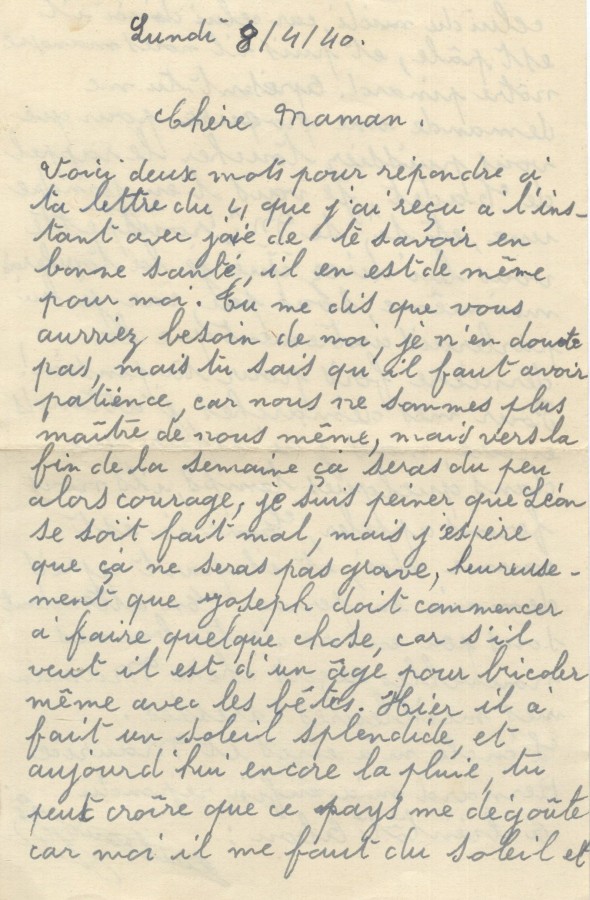 Lundi 8/4/40.
Chère Maman.
Voici deux mots pour répondre à
ta lettre du 4, que j'ai reçu a l'ins-
tant avec joie de te savoir en
bonne santé, il en est de même
pour moi. Tu me dis que vous
aurriez besoin de moi, je n'en doute
pas, mais tu sais qu'il faut avoir
patiénce, car nous ne sommes plus
maître de nous même, mais vers la
fin de la semaine çà seras du peu
alors courage, je suis peiner que Léon
se soit fait mal, mais j'espère
que çà ne seras pas grave, heureuse-
ment que Joseph doit commencer
a faire quelque chose, car s'il
veut il est d'un âge pour bricoler
même avec les bêtes. Hier il à
fait un soleil splendide, et
aujourd'hui encore la pluie, tu
peut croîre que ce pays me dégoûte
car moi il me faut du soleil et